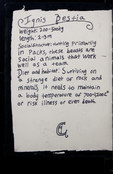 Ignis Bestia
Weight: 200-500kg
length: 2-3m
Social Behaviour: Hunting Primarily
in Packs, these beasts are
Social animals that work
well as a team
Diet and habitat: Surviving on
a strange diet of rock and
minerals, it needs to maintain
a body temperature of
or risk illness or even death